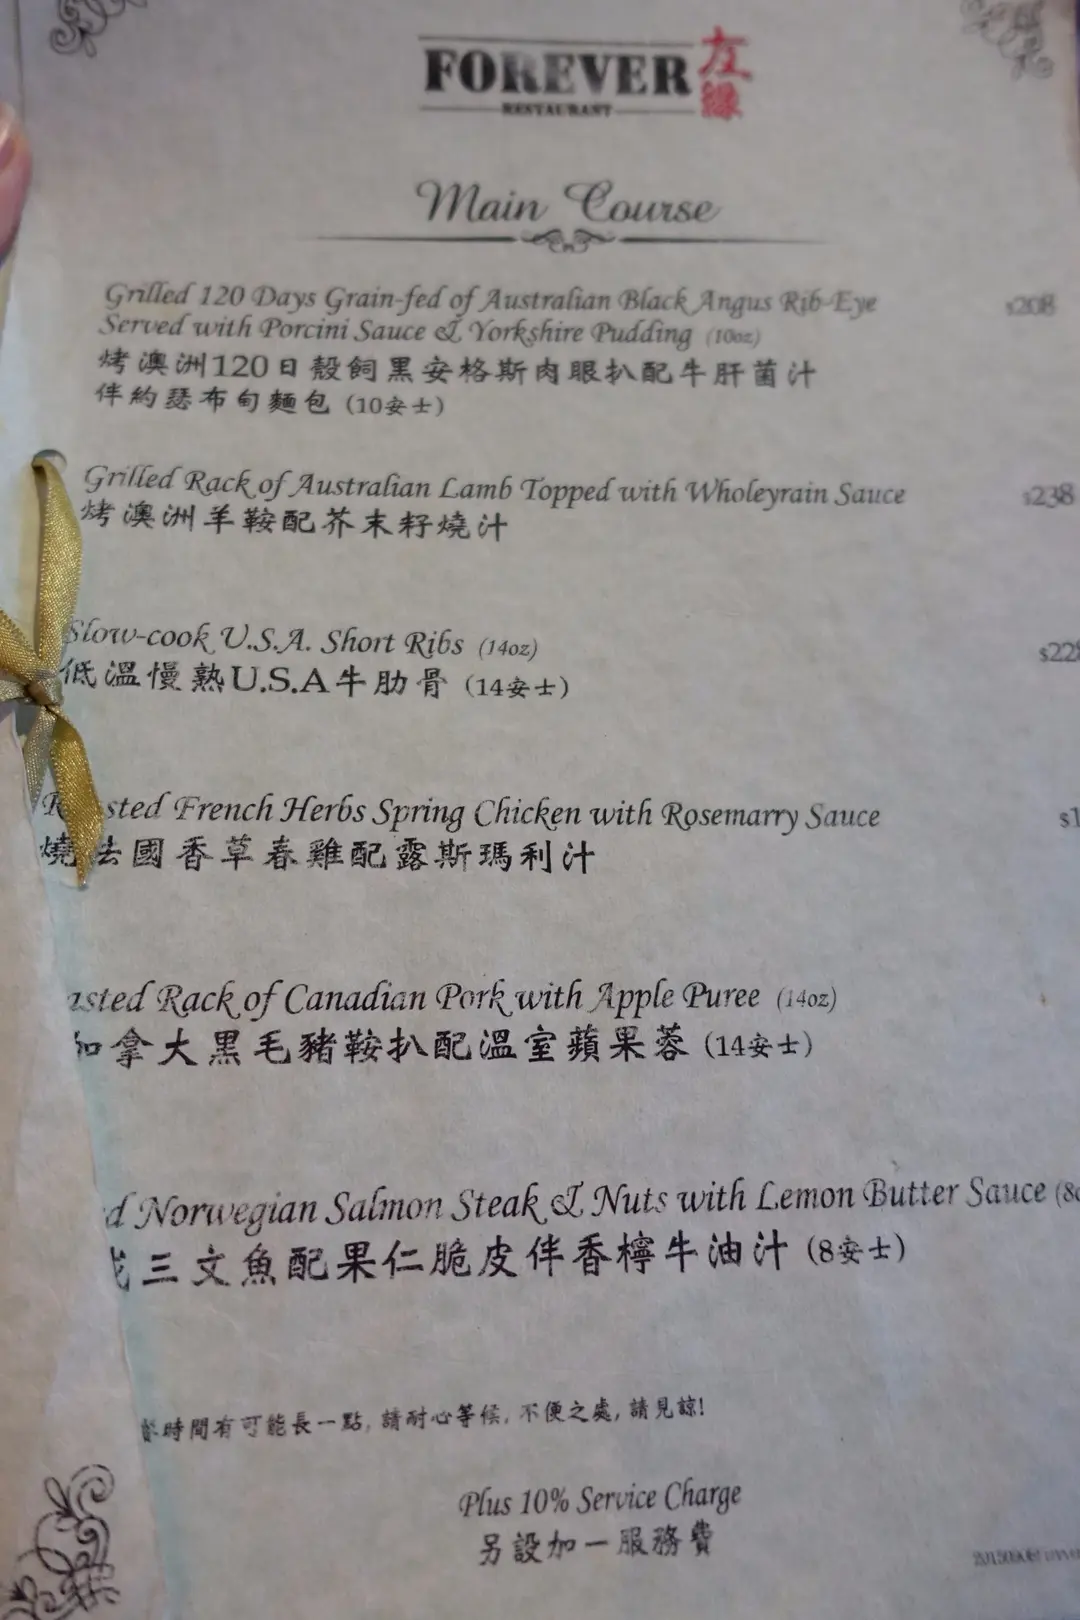 FOREVER 友緣
RESTAURANT
Main Course
Grilled 120 Days Grain-fed of Australian Black Angus Rib-Eye $208
Served with Porcini Sauce & Yorkshire Pudding (10oz)
烤澳洲120日穀飼黑安格斯肉眼扒配牛肝菌汁
伴約瑟布甸麵包 (10安士)
Grilled Rack of Australian Lamb Topped with Wholeyrain Sauce $238
烤澳洲羊鞍配芥末籽燒汁
Slow-cook U.S.A. Short Ribs (14oz) $228
低溫慢熟U.S.A牛肋骨 (14安士)
sted French Herbs Spring Chicken with Rosemarry Sauce $1
燒法國香草春雞配露斯瑪利汁
asted Rack of Canadian Pork with Apple Puree (14oz)
加拿大黑毛豬鞍扒配溫室蘋果蓉 (14安士)
d Norwegian Salmon Steak & Nuts with Lemon Butter Sauce (8o
三文魚配果仁脆皮伴香檸牛油汁 (8安士)
時間有可能長一點, 請耐心等候, 不便之處, 請見諒!
Plus 10% Service Charge
另設加一服務費